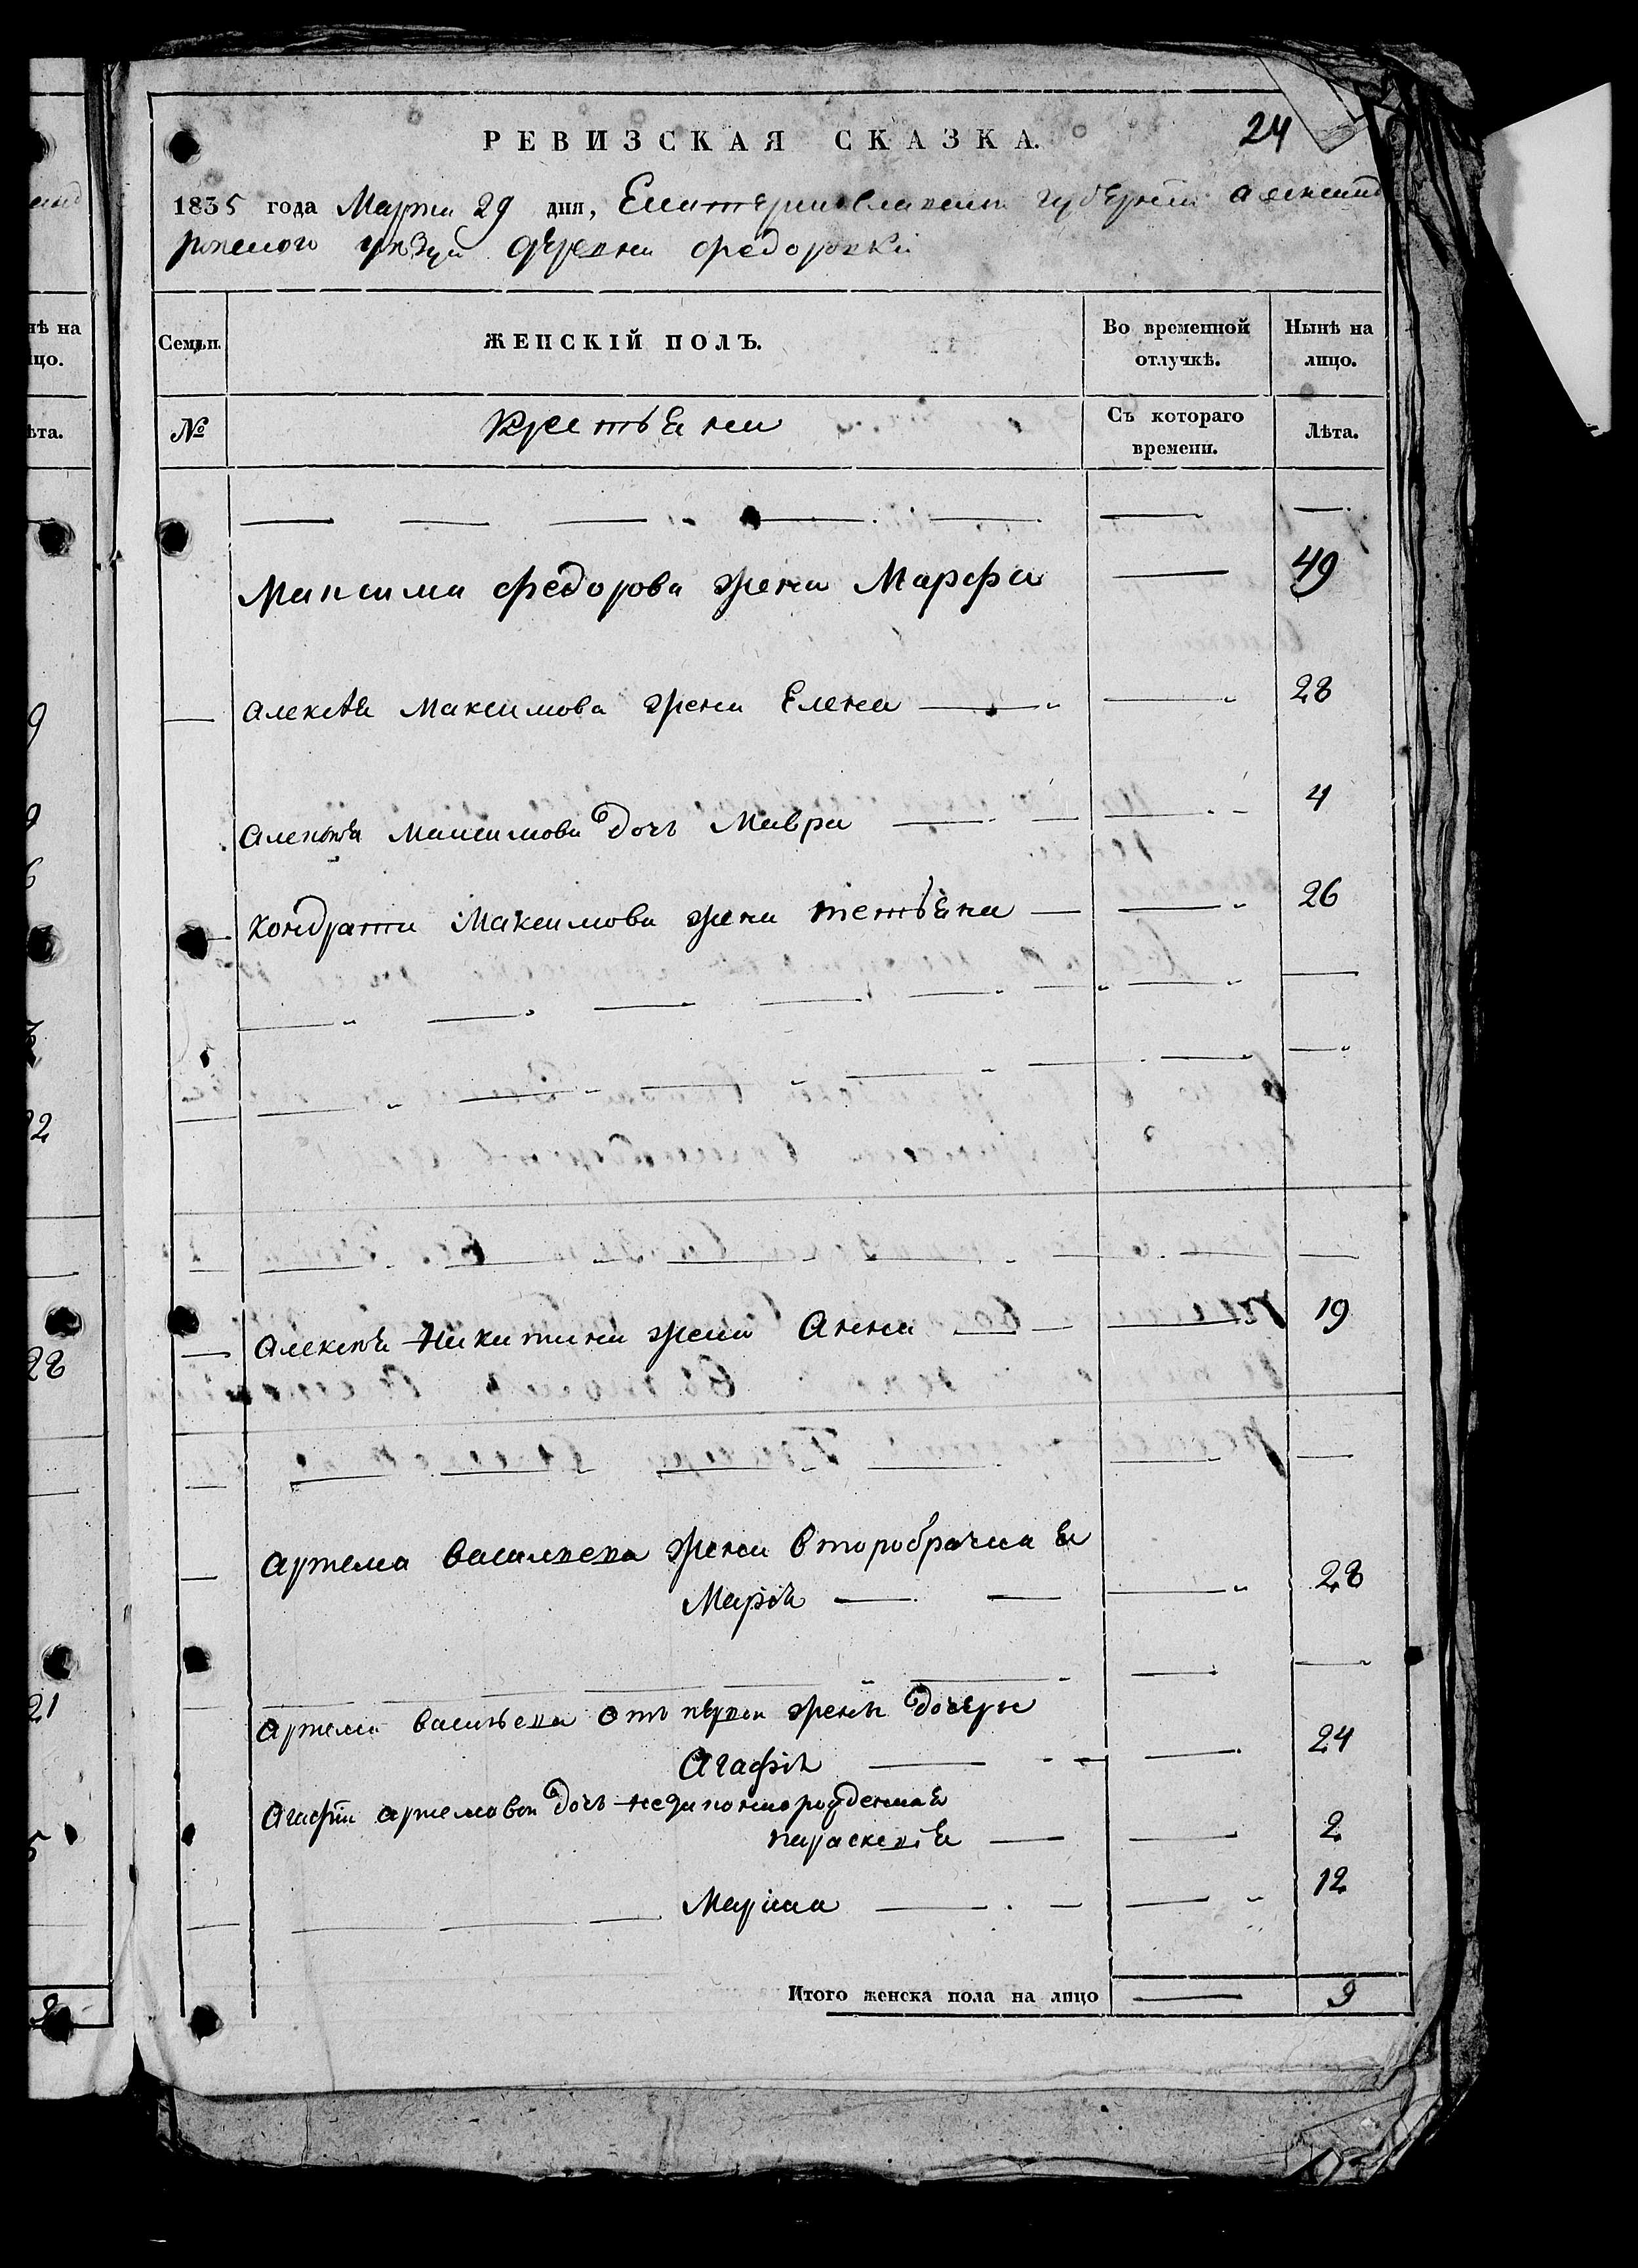 24
РЕВИЗСКАЯ СКАЗКА.
1835 года Марта 29 дня, Екатеринославской губернии Александ
ровского уѣзда деревни федоровки
Семьи.
ЖЕНСКІЙ ПОЛЪ.
Во временной отлучкѣ.
Нынѣ на лицо.
№
Крестьяни
Съ котораго времени.
Лѣта.
Максима федорова жена Марфа 49
Алексѣя Максимова жена Елена 28
Алексѣя Максимова дочь Мавра 4
Кондрата Максимова жена тетьяна 26
Алексѣя Никитина жена Анна 19
Артема Васильева жена второбрачная
Марія 28
Артема Васильева отъ первой жены дочери
Агафія 24
Агафіи Артемовой дочь незаконнорожденная
параскевія 2
Марина 12
Итого женска пола на лицо 9